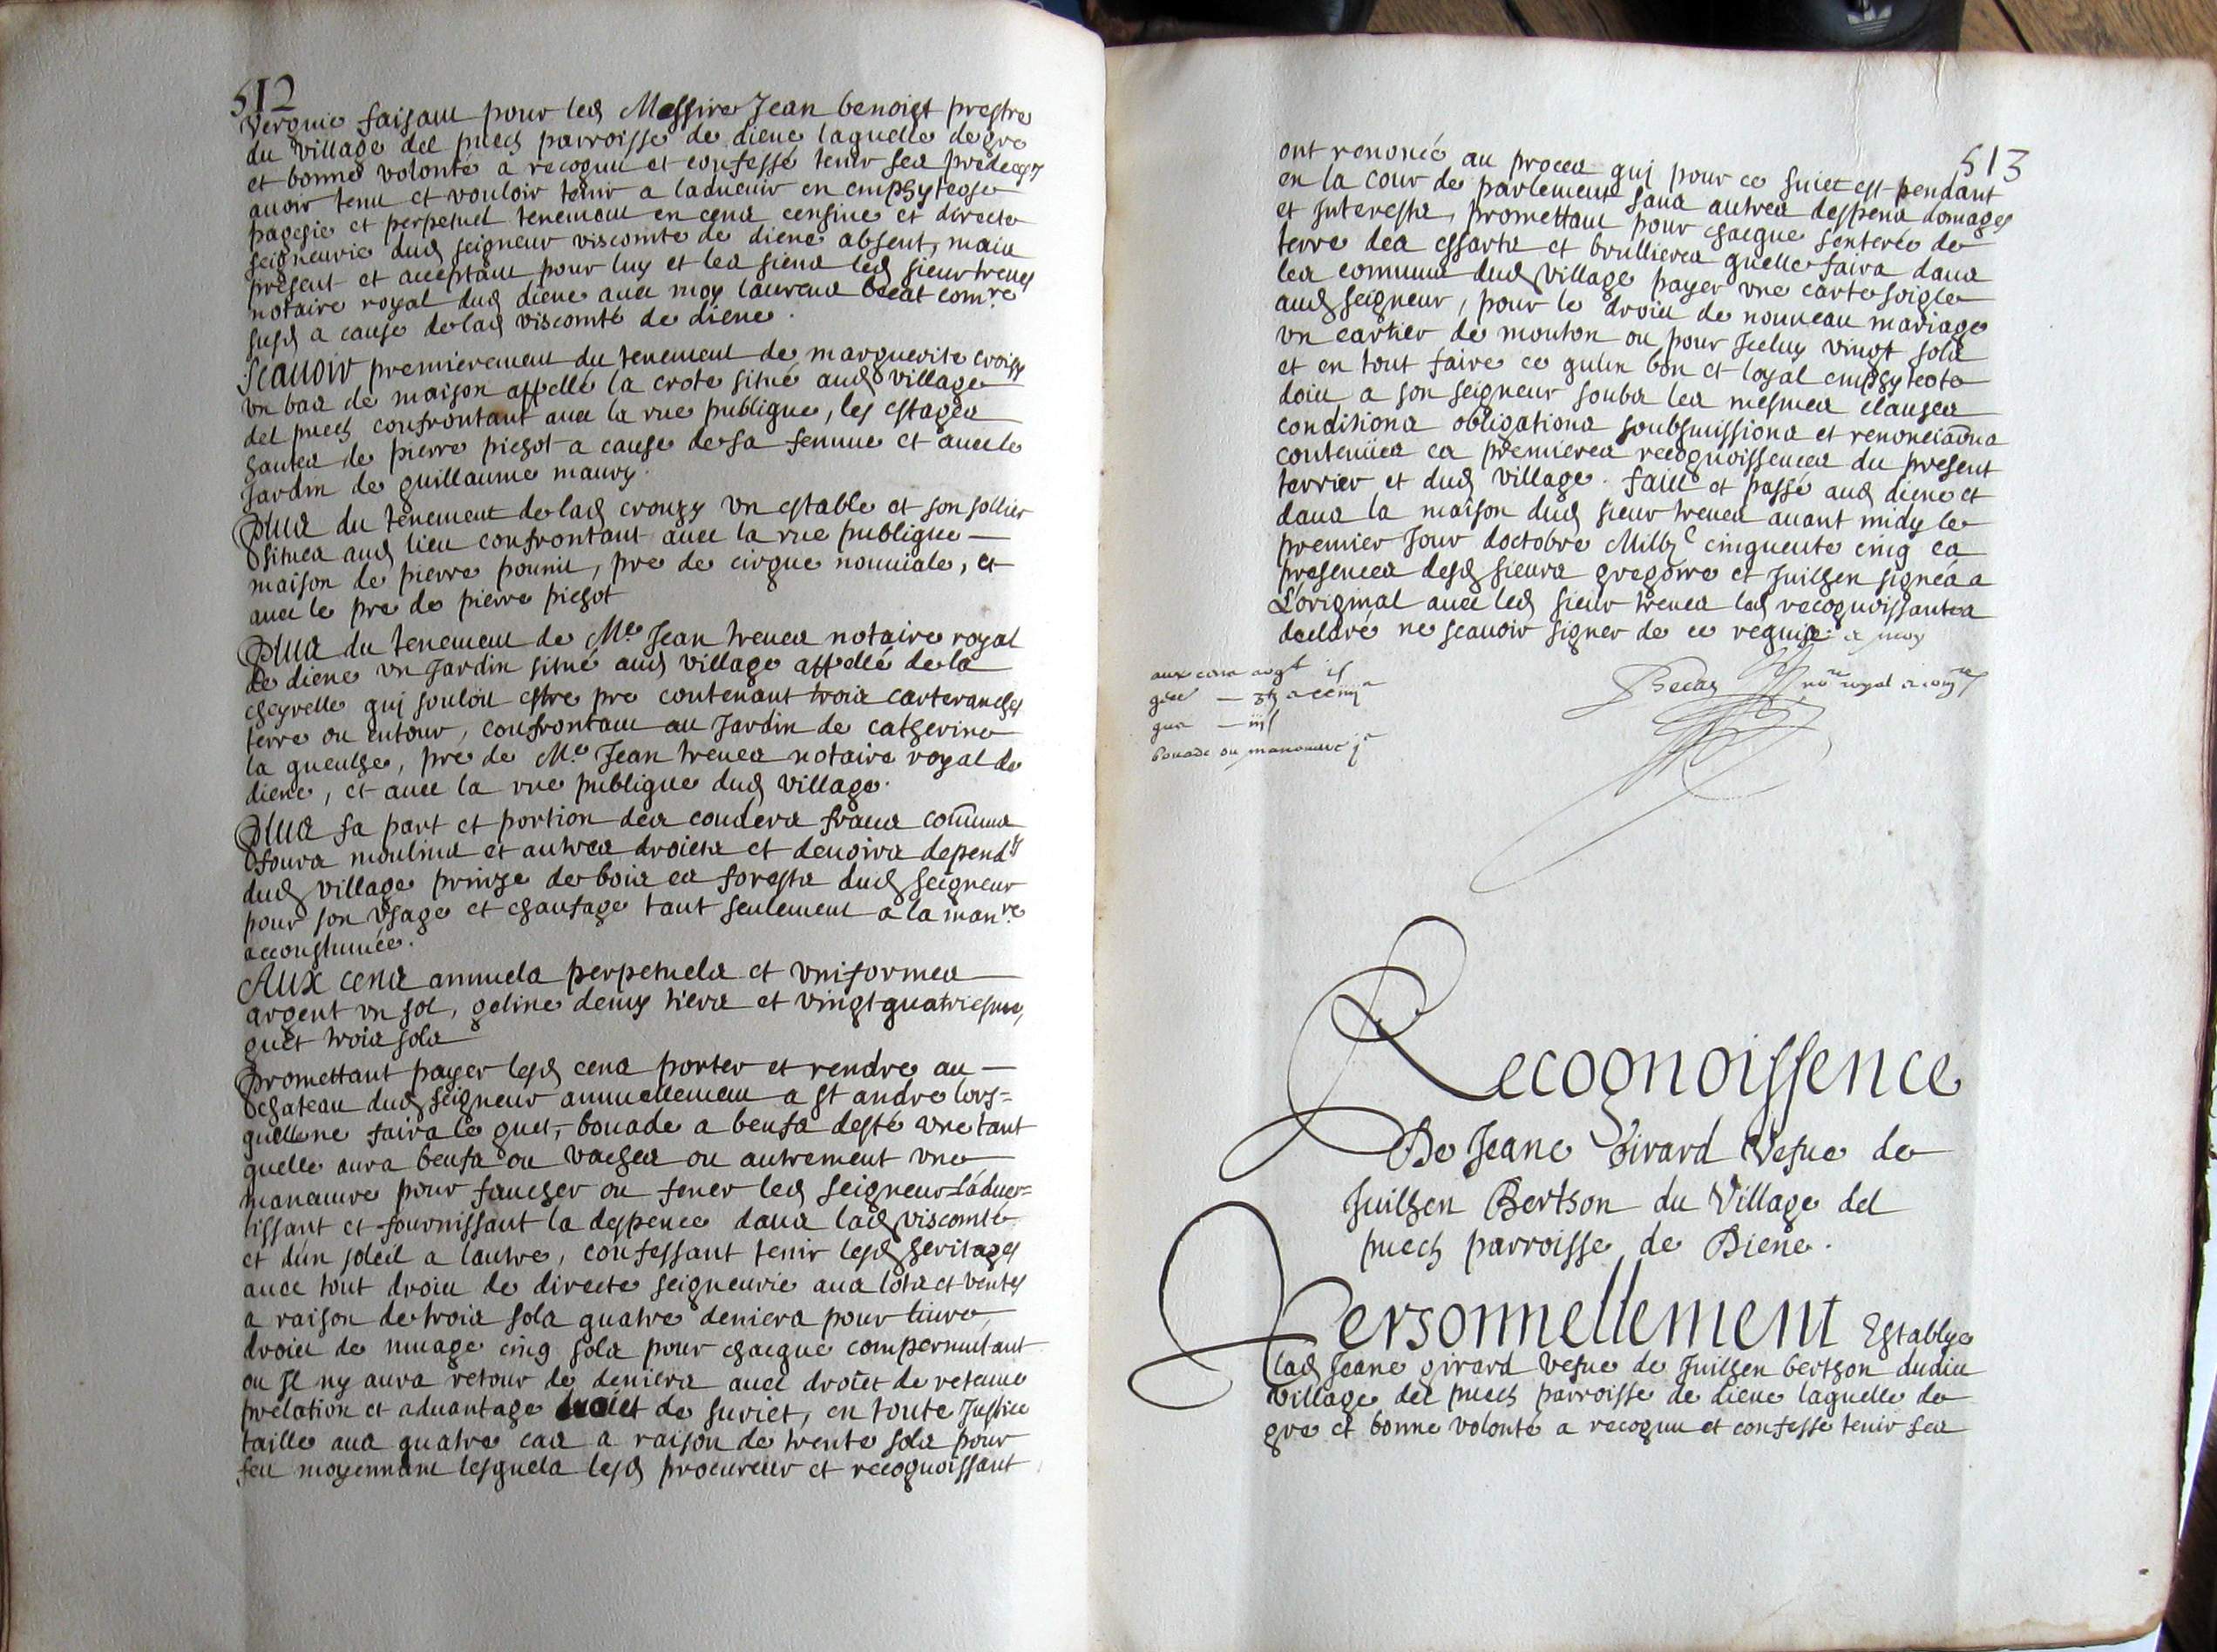 512
Vergnie faisant pour led Messire Jean benoist prestre
du village del puech parroisse de diene laquelle de gre
et bonne volonté a recognu et confessé tenir ses predecers
avoir tenu et vouloir tenir a laduenir en emphyteose
pagesie et perpetuel tenement en cens censiue et directe
seigneurie dud seigneur viscomte de diene absent, mais
present et acceptant pour luy et les siens led sieur treues
notaire royal dud diene auec moy laurens becat comre
susd a cause de lad viscomté de diene.
Scauoir premierement du tenement de marguerite croisy
vn bas de maison appellé la crote situé aud village
del puech confrontant auec la rue publique, les estages
hautes de pierre pichot a cause de sa femme et auec le
Jardin de guillaume maury.
Plus du tenement de lad crouzy vn estable et son sollier
situes aud lieu confrontant auec la rue publique
maison de pierre pounit, pre de cirgue nouuiale, et
auec le pre de pierre pichot
Plus du tenement de Me Jean treues notaire royal
de diene vn Jardin situé aud village appellé de la
cheyrelle qui souloit estre pre contenant trois carteranches
terre ou entour, confrontant au Jardin de catherine
la gueulhe, pre de Me Jean treues notaire royal de
diene, et auec la rue publique dud village.
Plus sa part et portion des couders fraux comuns
fours moulins et autres droicts et deuoirs dependts
dud village prinze de bois es forests dud seigneur
pour son vsage et chaufage tant seulement a la manre
accoustumée.
Aux cens annuels perpetuels et vniformes
argent vn sol, geline demy tiers et vingtquatriesme,
guet trois sols
Promettant payer lesd cens porter et rendre au
chateau dud seigneur annuellement a st andre lors=
quelle ne faira le guet, bouade a beufs desté vne tant
quelle aura beufs ou vaches ou autrement vne
manœuure pour faucher ou fener led seigneur laduer=
tissant et fournissant la despence dans lad viscomté
et dun soleil a lautre, confessant tenir lesd heritages
auec tout droict de directe seigneurie aux lots et ventes
a raison de trois sols quatre deniers pour liure,
droict de muage cinq sols pour chacque compermutant
ou Jl ny aura retour de deniers auec droict de retenue
prelation et aduantage droict de suriet, en toute Justice
taille aux quatre cas a raison de trente sols pour
feu moyennant lesquels lesd procureur et recognoissant
513
ont renoncé au proces qui pour ce suiet est pendant
en la cour de parlement sans autres despens domages
et Interests, promettant pour chacque senterée de
terre des essarts et brullieres quelle faira dans
les communs dud village payer vne carte soigle
aud seigneur, pour le droict de nouueau mariage
vn cartier de mouton ou pour Jceluy vingt sols
et en tout faire ce qulun bon et loyal emphyteote
doict a son seigneur soubs les mesmes clauses
conditions obligations soubsmissions et renonciaons
contenües es premieres recognoissences du present
terrier et dud village. faict et passé aud diene et
dans la maison dud sieur treues auant midy le
premier Jour doctobre Mil vjc cinquente cinq es
presences desd sieurs gregoire et Juilhen signés a
Loriginal auec led sieur treues lad recognoissantes
declaré ne scauoir signer de ce requise. a moy
Becat nore royal a comre
aux cens argt is
gue — iijs
bouade ou manœuure je
Recognoissence
De Jeane Girard Vefue de
Juilhen Bertson du Village del
puech parroisse de Diene.
Personnellement Establye
lad Jeane girard vefue de Juilhen bertson dudit
village del puech parroisse de diene laquelle de
gre et bonne volonté a recognu et confesse tenir ses